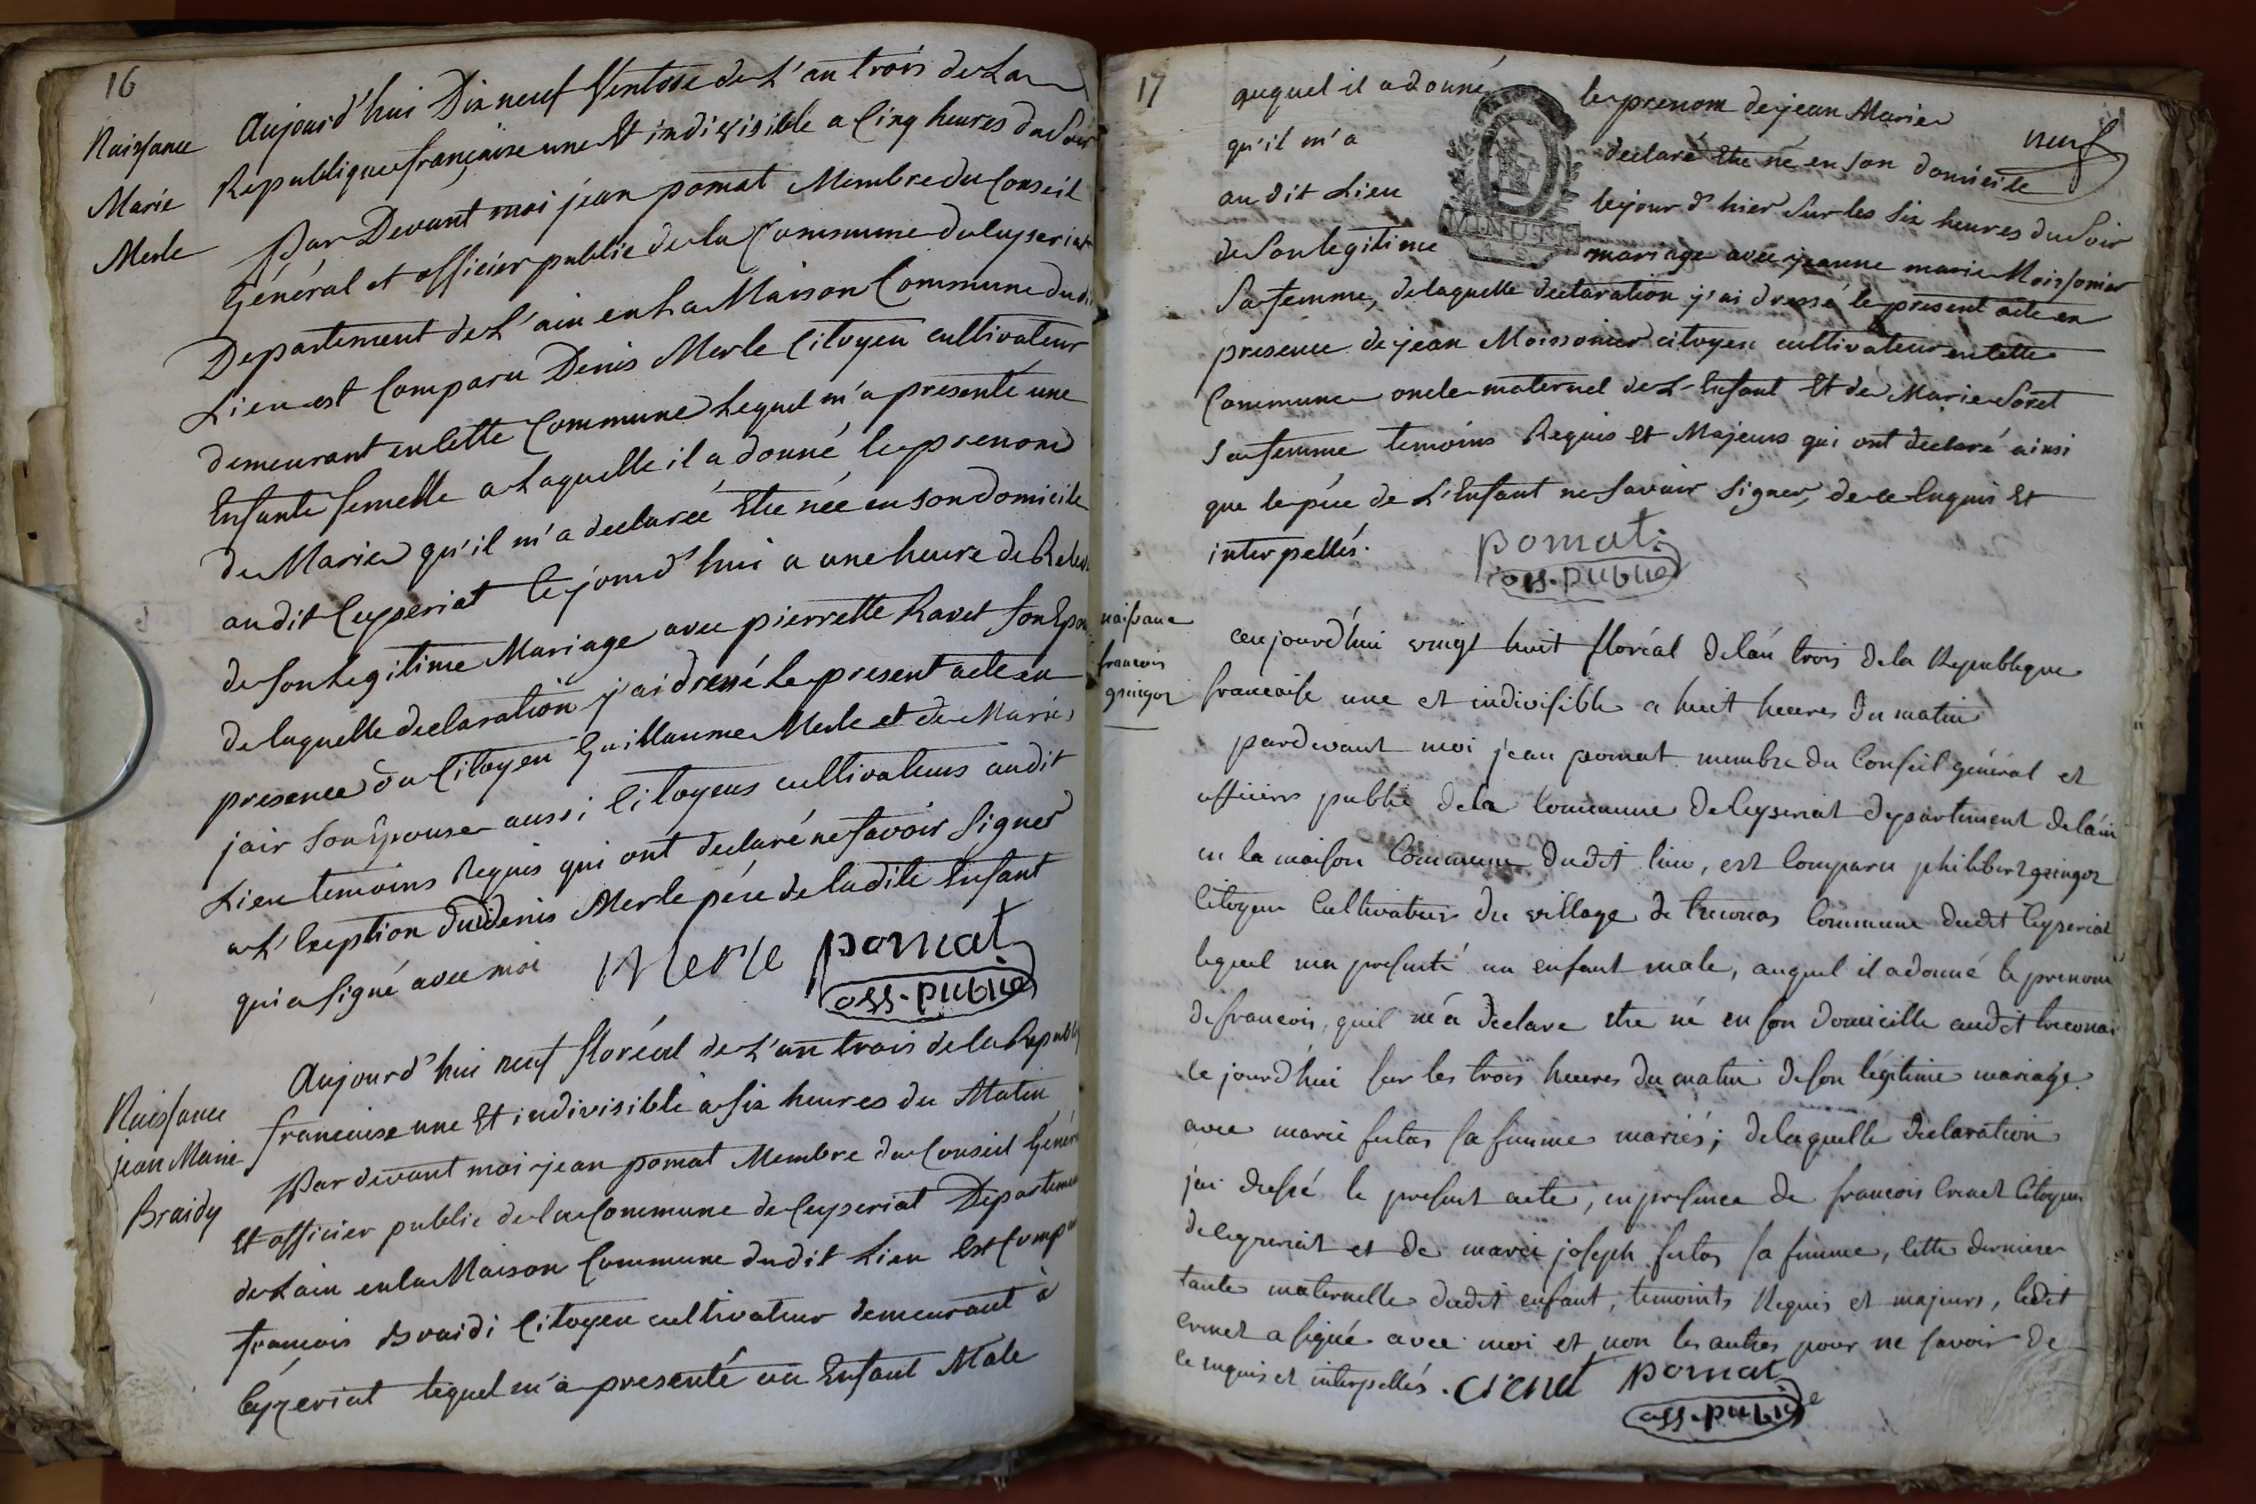 16
Naissance
Marie
Merle
Aujourd'hui Dix neuf Ventose de L'an trois de La
Republique française une Et indivisible a Cinq heures du Soir
Par Devant moi jean pomat Membre du Conseil
Général et officier public de la Commune de Ceyseriat
Departement de L'ain en La Maison Commune du dit
Lieu est Comparu Denis Merle Citoyen cultivateur
demeurant en Cette Commune Lequel m'a presenté une
Enfante femelle a Laquelle il a donné le prenom
de Marie qu'il m'a declarée Etre née en son domicile
au dit Ceyseriat Ce jourd'hui a une heure de
de son Legitime Mariage avec pierrette Ravet son
de laquelle declaration j'ai dressé Le present acte en
presence du Citoyen Guillaume Merle et de Marie
jair son Epouse aussi Citoyens cultivateurs audit
Lieu temoins Requis qui ont declaré ne savoir Signer
a L'Exception dudit Denis Merle pére de ladite Enfant
qui a signé avec moi
Merle pomat
off. public
Naissance
jean Marie
Braidy
Aujourd'hui neuf floréal de L'an trois de la
francaise une Et indivisible a six heures du Matin
Par devant moi jean pomat Membre du Conseil
Et officier public de la Commune de Ceyseriat
de Lain en la Maison Commune dudit Lieu Est
françois Braidi Citoyen cultivateur demeurant à
Ceyzeriat lequel m'a presenté un Enfant Male
17
neuf
auquel il a donné le prenom de jean Marie
qu'il m'a declaré Etre né en son domicile
au dit Lieu le jour d'hier sur les six heures du soir
de son legitime mariage avec jeanne marie Moissonier
MINUTE
sa femme, de laquelle declaration j'ai dressé le present acte en
presence de jean Moissonier citoyen cultivateur en cette
Commune oncle maternel de L'Enfant Et de Marie Soret
sa femme temoins Requis Et Majeurs qui ont declaré ainsi
que le pére de L'Enfant ne savoir signer, de ce Enquis Et
interpellés.
pomat
off. public
naissance
francois
gringoz
aujourd'hui vingt huit floréal de lan trois de la Republique
francaise une et indivisible a huit heures du matin
pardevant moi jean pomat membre du Conseil général et
officier public de la Commune de Ceyseriat departement de l'ain
en la maison Commune dudit lieu, est Comparu philibert gringoz
Citoyen Cultivateur du village de treconas Commune dudit Ceyseriat
lequel ma presenté un enfant male, auquel il a donné le prenom
de francois, quil m'a declare etre né en son domicille audit treconas
ce jourd'hui sur les trois heures du matin de son légitime mariage
avec marie futas sa femme mariés; delaquelle declaration
j'ai dressé le present acte, en presence de francois Crenet Citoyen
de Ceyzeriat et de marie joseph futas sa femme, cette derniere
tante maternelle dudit enfant, temoints Requis et majeurs, ledit
Crenet a signé avec moi et non les autres pour ne savoir de
ce enquis et interpellés. Crenet pomat
off. public